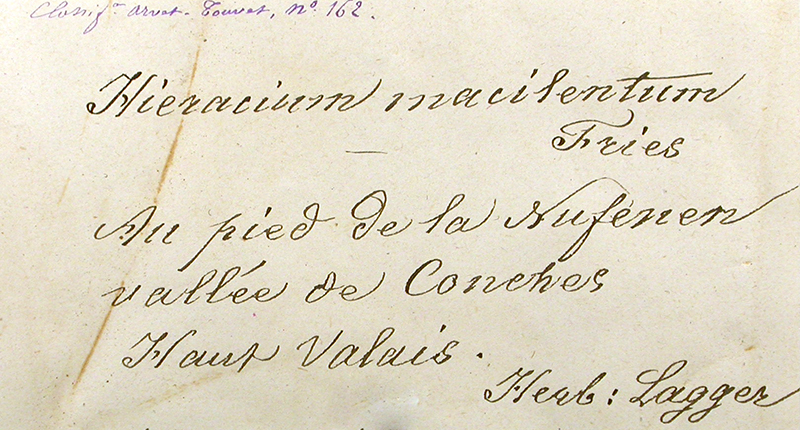 Classif.on Arvet-Touvet, No. 162.
Hieracium macilentum
Fries
Au pied de la Nufenen
vallée de Conches
Haut Valais.
Herb: Lagger